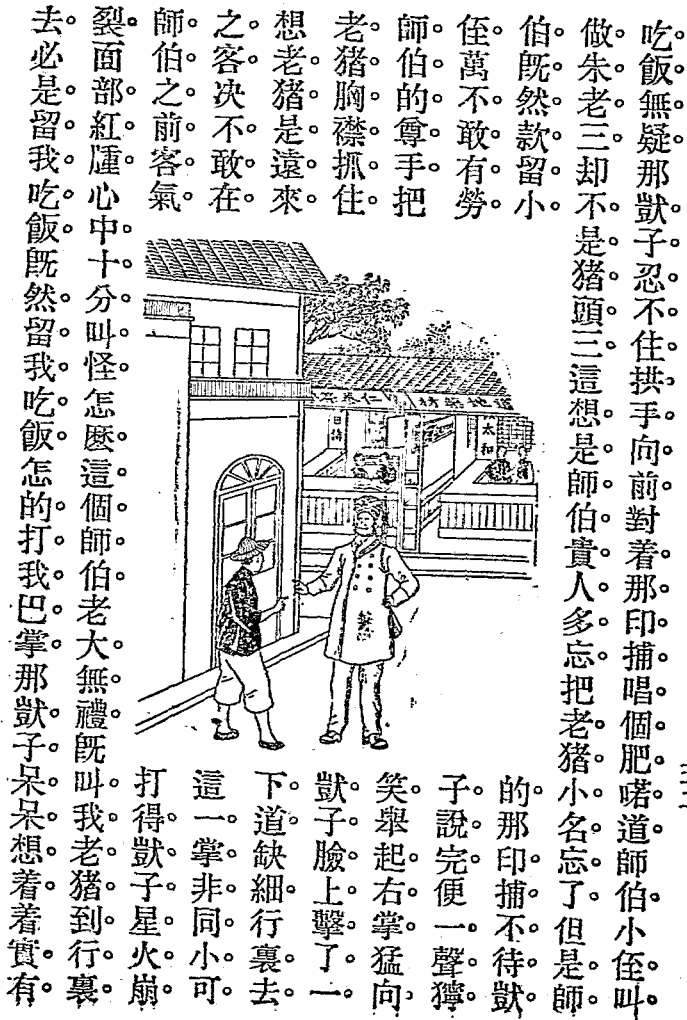 吃飯無疑那獃子忍不住拱手向前對着那印捕唱個肥喏道師伯小侄叫
做朱老三却不是猪頭三這想是師伯貴人多忘把老猪小名忘了但是師
伯旣然款留小
侄萬不敢有勞
師伯的尊手把
老猪胸襟抓住
想老猪是遠來
之客决不敢在
師伯之前客氣
道地藥材
太和
的那印捕不待獃
子說完便一聲獰
笑舉起右掌猛向
獃子臉上擊了一
下道缺細行裏去
這一掌非同小可
打得獃子星火崩
裂面部紅腫心中十分叫怪怎麼這個師伯老大無禮旣叫我老猪到行裏
去必是留我吃飯旣然留我吃飯怎的打我巴掌那獃子呆呆想着着實有